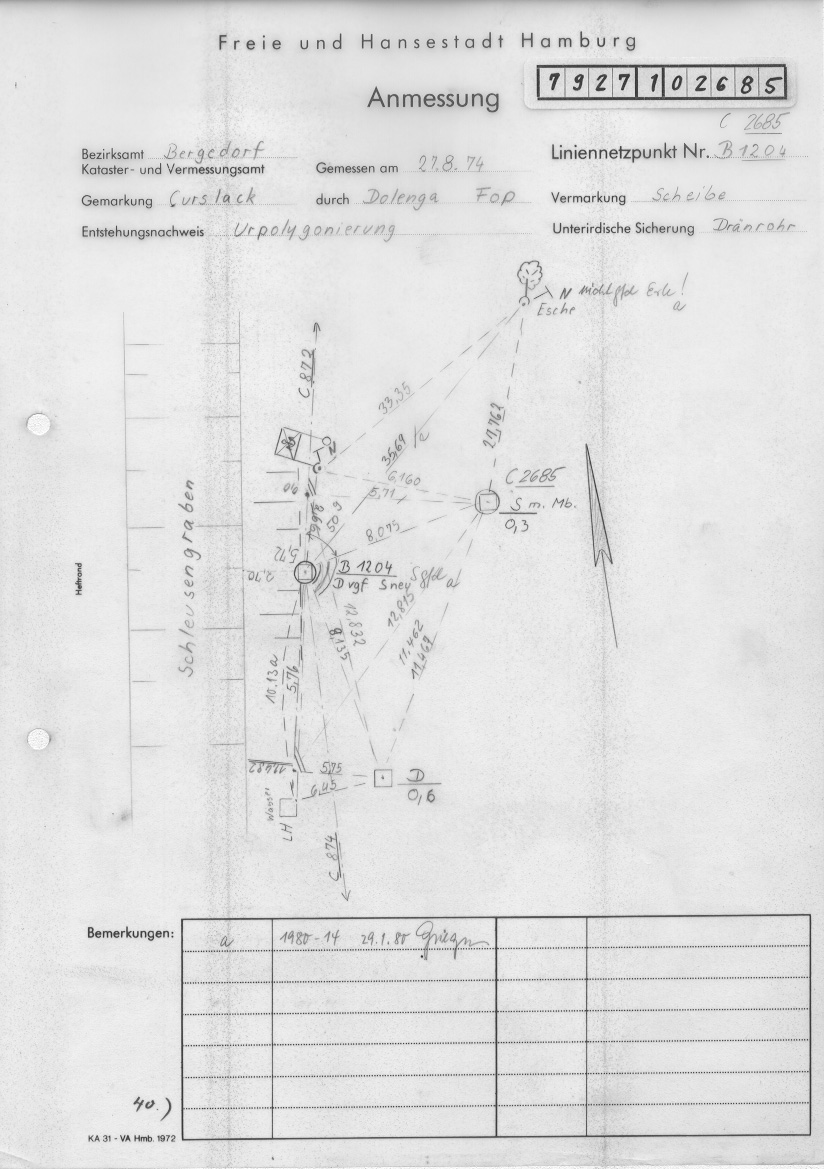 Freie und Hansestadt Hamburg
Anmessung
7927102685
C 2685
Bezirksamt Bergedorf
Kataster- und Vermessungsamt
Gemessen am 27.8.74
Liniennetzpunkt Nr. B 1204
Gemarkung Curslack
durch Dolenga Fop
Vermarkung Scheibe
Entstehungsnachweis Urpolygonierung
Unterirdische Sicherung Dränrohr
N nicht gfd Erle!
a
Esche
C 872
33,35
27,762
35,69 a
6,160
5,71
C 2685
S m. Mb.
0,3
8,075
509
5,12
2,70
B 1204
D vgf S neu S gfd a
Schleusengraben
Heftrand
12,832
8,135
12,815
11,462
11,462
10.13 a
5,76
5,75
6,45
D
0,6
Wasser
LH
C 874
Bemerkungen:
a 1980-14 29.1.80
40.)
KA 31 - VA Hmb. 1972